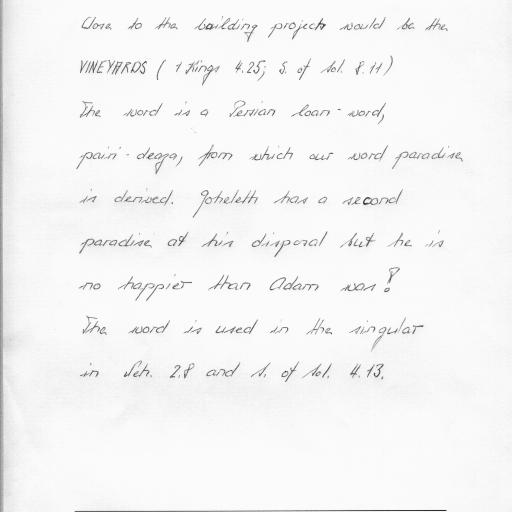 Close to the building projects would be the
VINEYARDS (1 Kings 4.25; S. of Sol. 8.11)
The word is a Persian loan-word,
pairi-deaza, from which our word paradise
is derived. Qoheleth has a second
paradise at his disposal but he is
no happier than Adam was!
The word is used in the singular
in Neh. 2.8 and S. of Sol. 4.13.